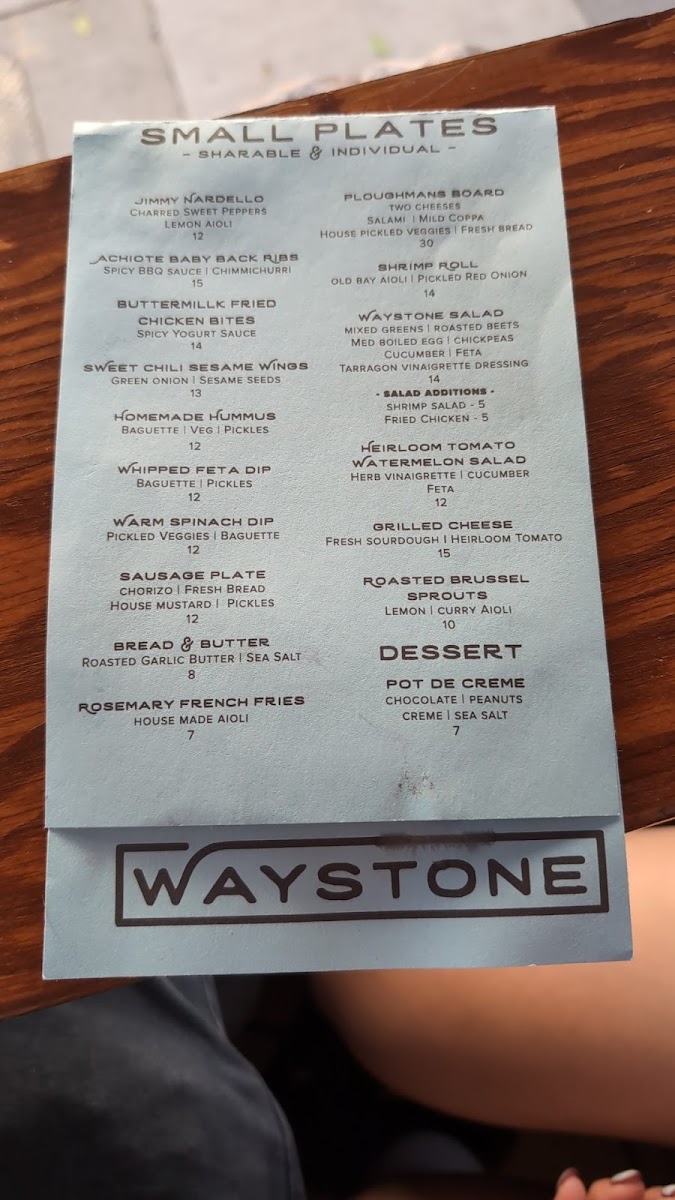 SMALL PLATES
- SHARABLE & INDIVIDUAL -
JIMMY NARDELLO
CHARRED SWEET PEPPERS
LEMON AIOLI
12
ACHIOTE BABY BACK RIBS
SPICY BBQ SAUCE | CHIMMICHURRI
15
BUTTERMILLK FRIED
CHICKEN BITES
SPICY YOGURT SAUCE
14
SWEET CHILI SESAME WINGS
GREEN ONION | SESAME SEEDS
13
HOMEMADE HUMMUS
BAGUETTE | VEG | PICKLES
12
WHIPPED FETA DIP
BAGUETTE | PICKLES
12
WARM SPINACH DIP
PICKLED VEGGIES | BAGUETTE
12
SAUSAGE PLATE
CHORIZO | FRESH BREAD
HOUSE MUSTARD | PICKLES
12
BREAD & BUTTER
ROASTED GARLIC BUTTER | SEA SALT
8
ROSEMARY FRENCH FRIES
HOUSE MADE AIOLI
7
PLOUGHMANS BOARD
TWO CHEESES
SALAMI | MILD COPPA
HOUSE PICKLED VEGGIES | FRESH BREAD
30
SHRIMP ROLL
OLD BAY AIOLI | PICKLED RED ONION
14
WAYSTONE SALAD
MIXED GREENS | ROASTED BEETS
MED BOILED EGG | CHICKPEAS
CUCUMBER | FETA
TARRAGON VINAIGRETTE DRESSING
14
- SALAD ADDITIONS -
SHRIMP SALAD - 5
FRIED CHICKEN - 5
HEIRLOOM TOMATO
WATERMELON SALAD
HERB VINAIGRETTE | CUCUMBER
FETA
12
GRILLED CHEESE
FRESH SOURDOUGH | HEIRLOOM TOMATO
15
ROASTED BRUSSEL
SPROUTS
LEMON | CURRY AIOLI
10
DESSERT
POT DE CREME
CHOCOLATE | PEANUTS
CREME | SEA SALT
7
WAYSTONE